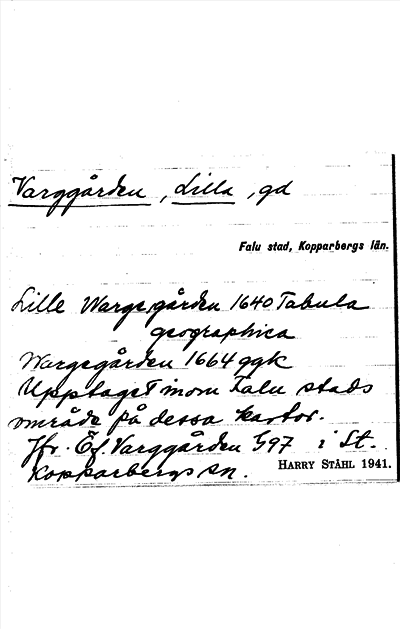 Varggården, Lilla, gd
Falu stad, Kopparbergs län.
Lille Wargegården 1640 Tabula
geographica
Wargegården 1664 ggk
Upptaget inom Falu stads
område på dessa kartor.
Jfr. Öf. Varggården 597 i St.
Kopparbergs sn.
HARRY STÅHL 1941.